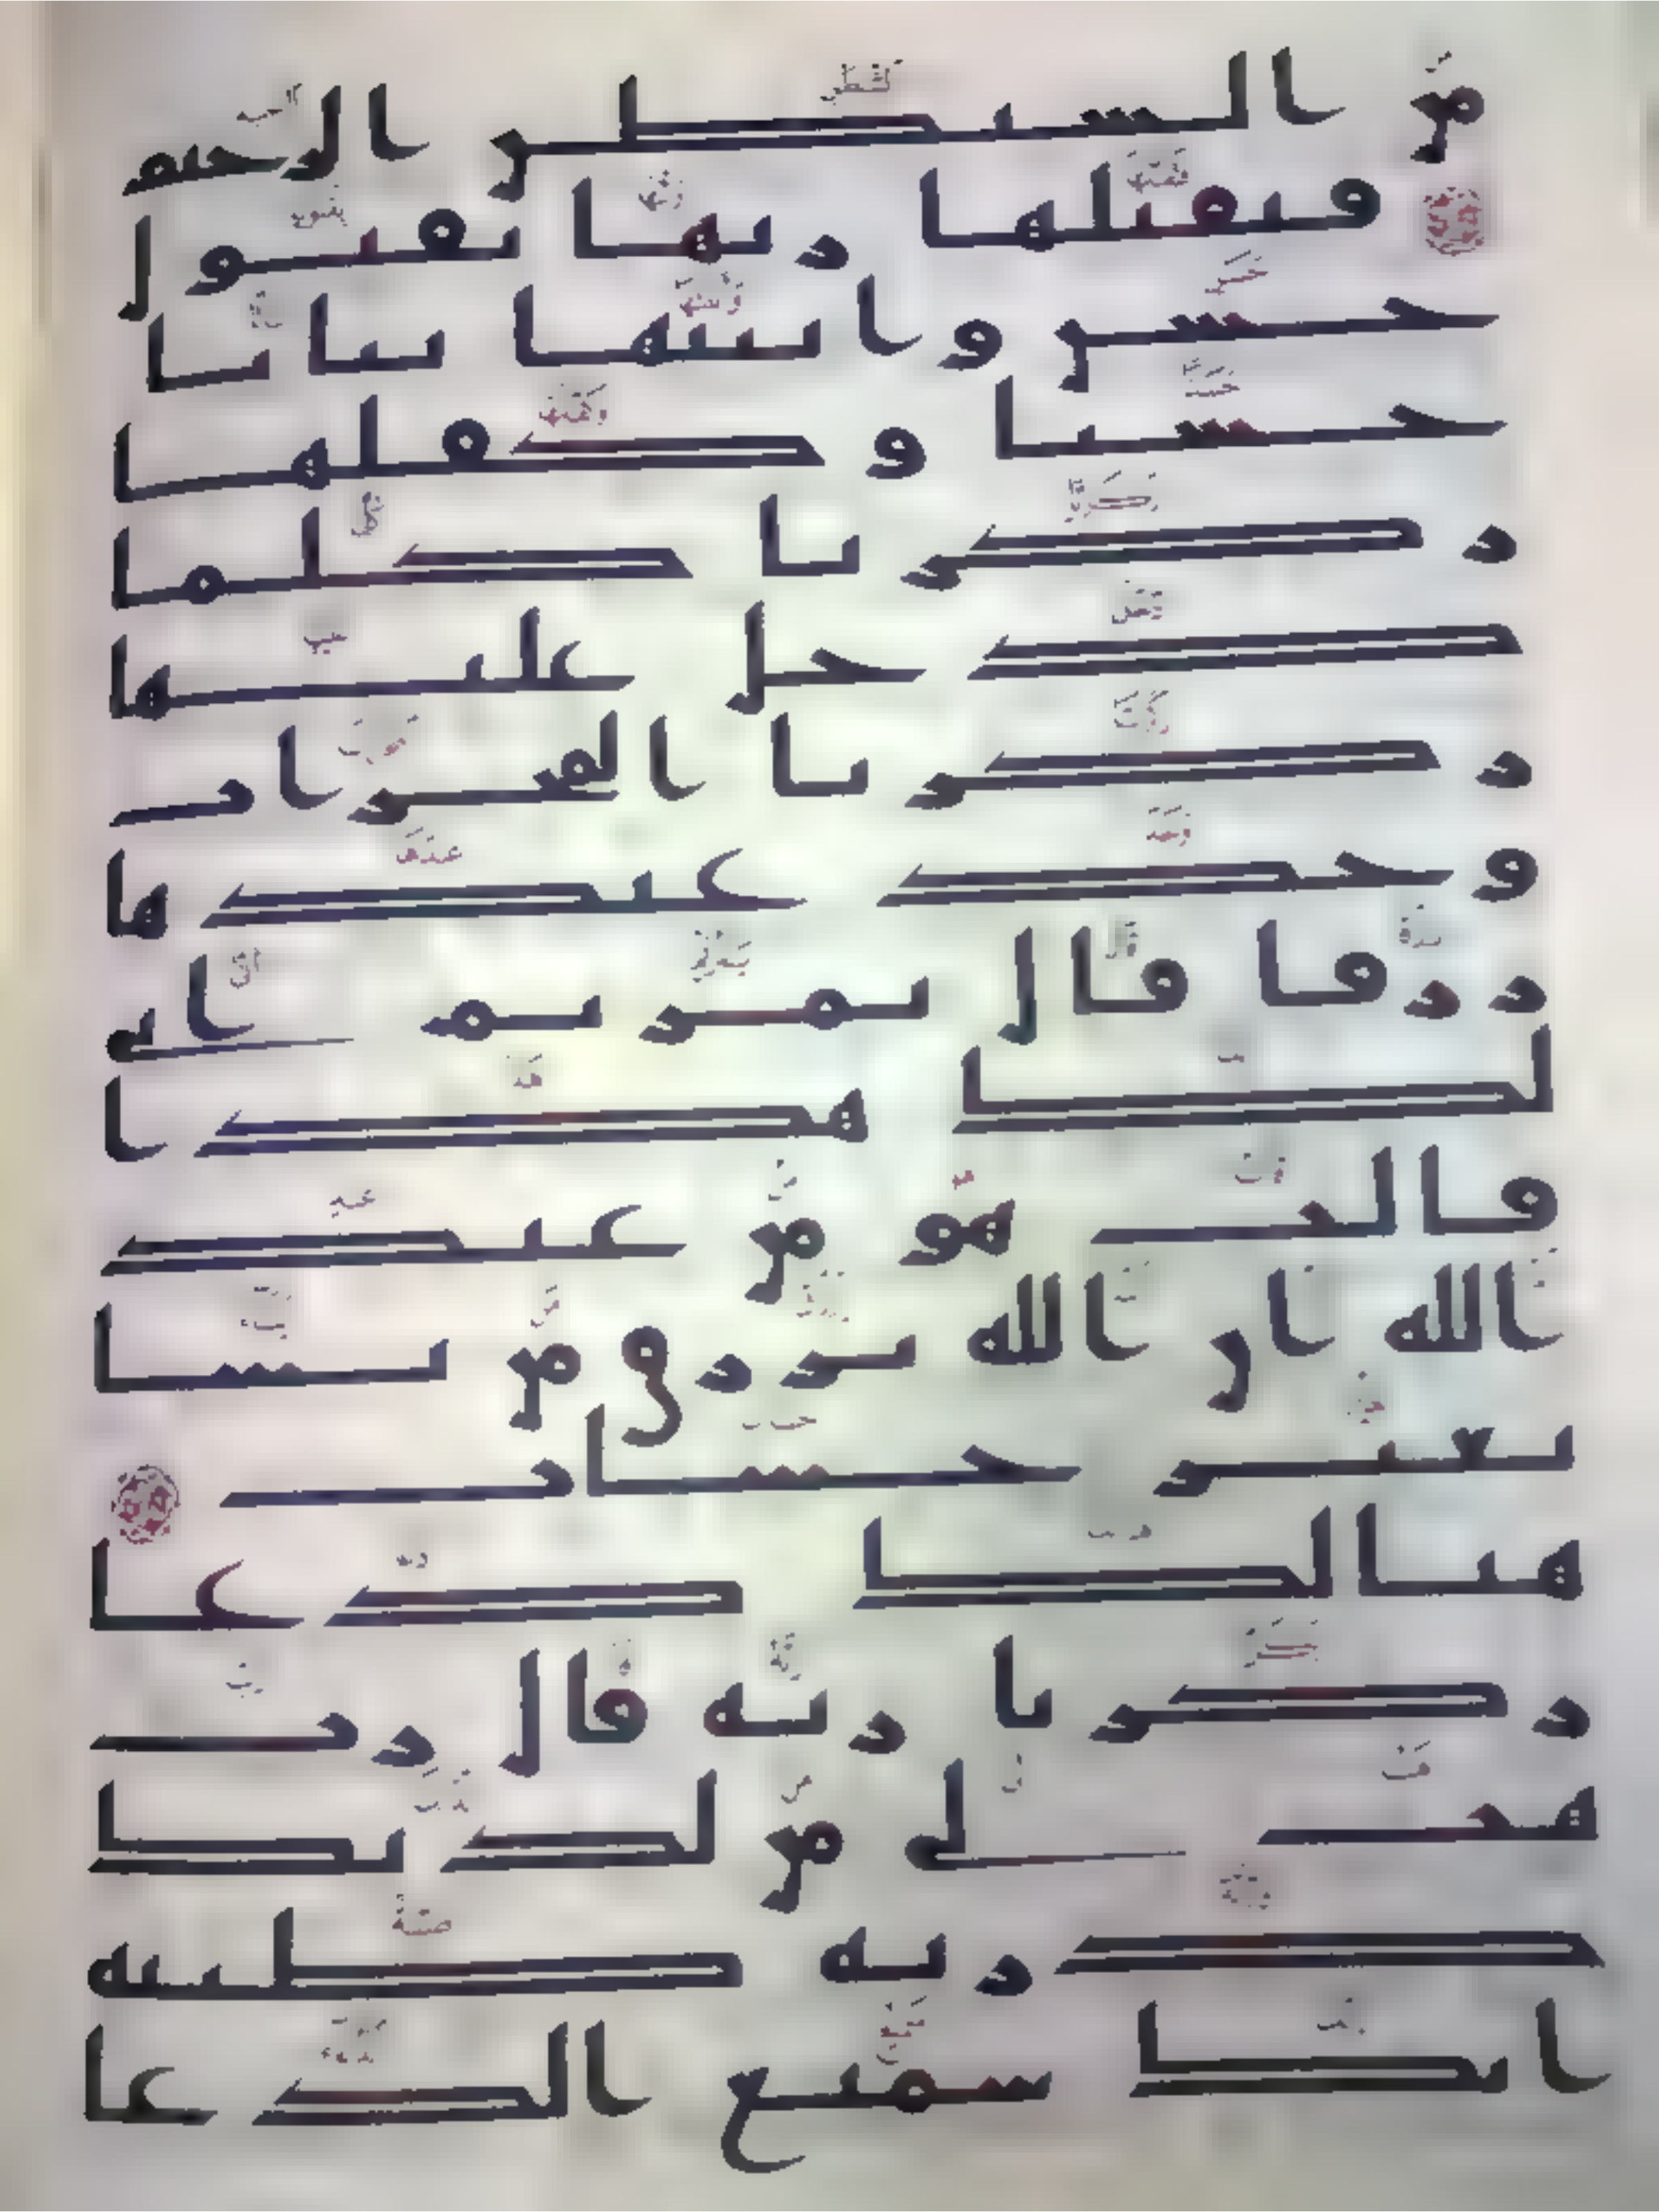 من الشيطن الرجيم
فتقبلها ربها بقبول
حسن وانبتها نباتا
حسنا وكفلها
زكريا كلما
دخل عليها
زكريا المحراب
وجد عندها
رزقا قال يمريم انى
لك هذا
قالت هو من عند
الله ان الله يرزق من يشا
بغير حساب
هنالك دعا
زكريا ربه قال رب
هب لى من لدنك
ذرية طيبة
انك سميع الدعا